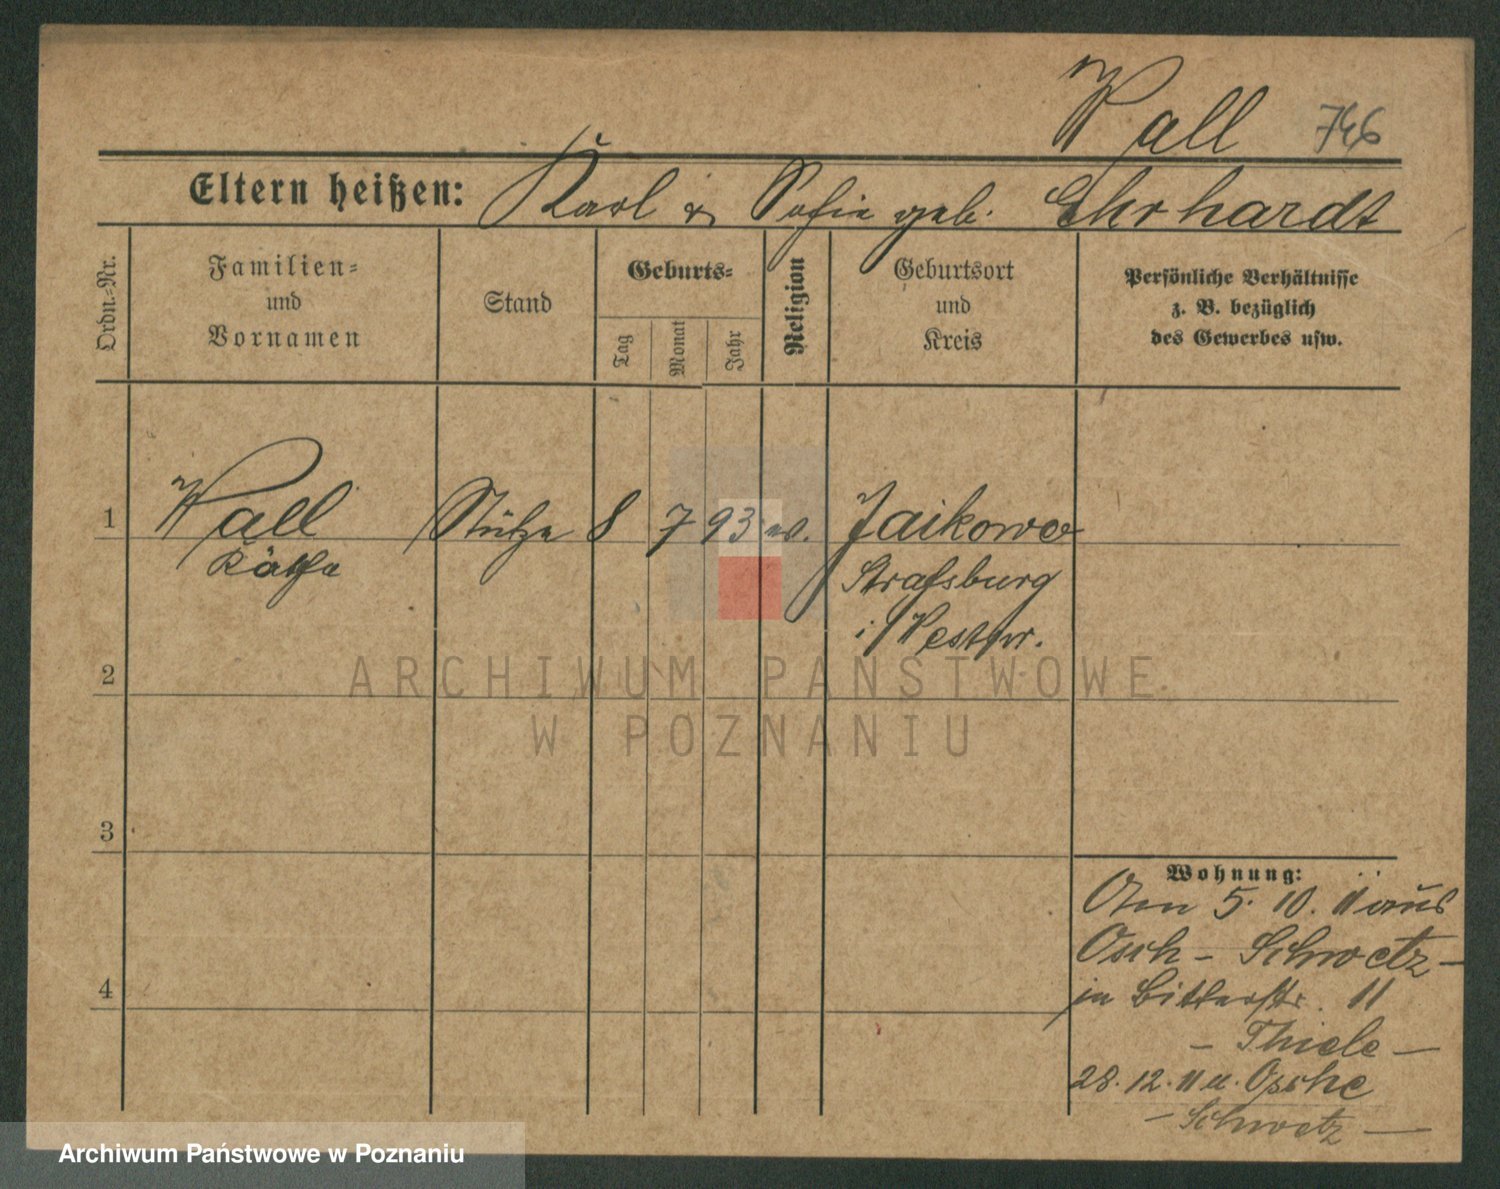 Wall 746
Eltern heißen: Karl & Sofie geb. Ehrhardt
Ordn.-Nr.
Familien=
und
Vornamen
Stand
Geburts=
Tag
Monat
Jahr
Religion
Geburtsort
und
Kreis
Persönliche Verhältnisse
z. B. bezüglich
des Gewerbes usw.
1 Wall Stütze 8 7 93 ev. Jaikowo
Käthe Strassburg
i/Westpr.
2
3
4
Wohnung:
5. 10. 11 aus
Osch - Schwetz -
in Bitterstr. 11
- Thiele -
28. 12. 11 n. Osche
- Schwetz -
ARCHIWUM PAŃSTWOWE
W POZNANIU
Archiwum Państwowe w Poznaniu